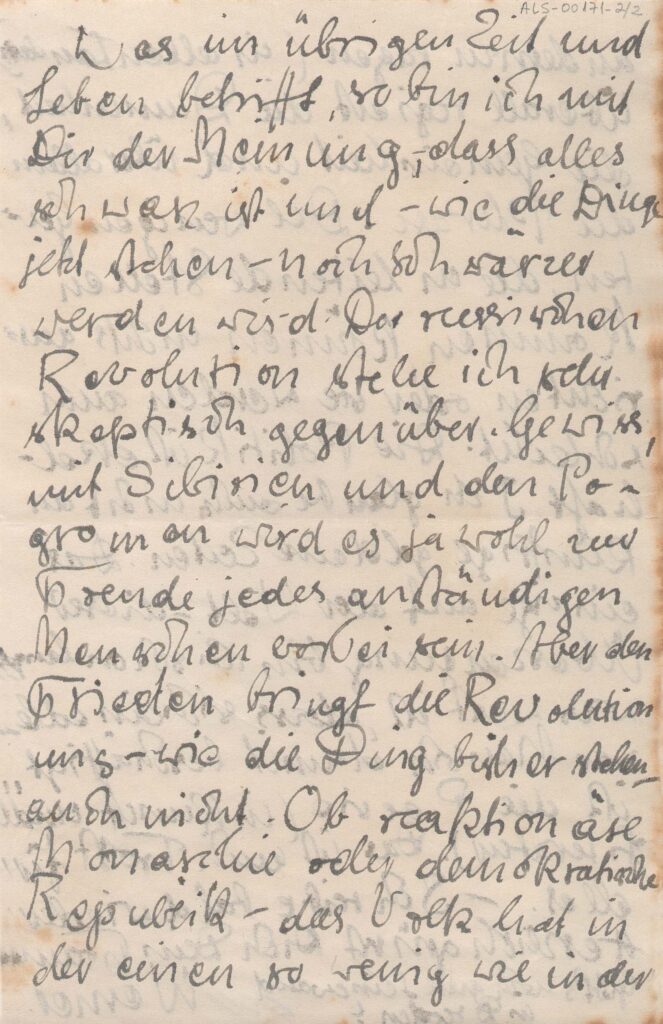 ALS-00171-2/2
Was im übrigen Zeit und
Leben betrifft, so bin ich mit
Dir der Meinung, dass alles
schwarz ist und – wie die Dinge
jetzt stehen – noch schwärzer
werden wird. Der russischen
Revolution stehe ich sehr
skeptisch gegenüber. Gewiss,
mit Sibirien und den Po-
gromen wird es ja wohl zur
Freude jedes anständigen
Menschen vorbei sein. Aber den
Frieden bringt die Revolution
uns – wie die Ding bisher stehen –
auch nicht. Ob reaktionäre
Monarchie oder demokratische
Republik – das Volk hat in
der einen so wenig wie in der